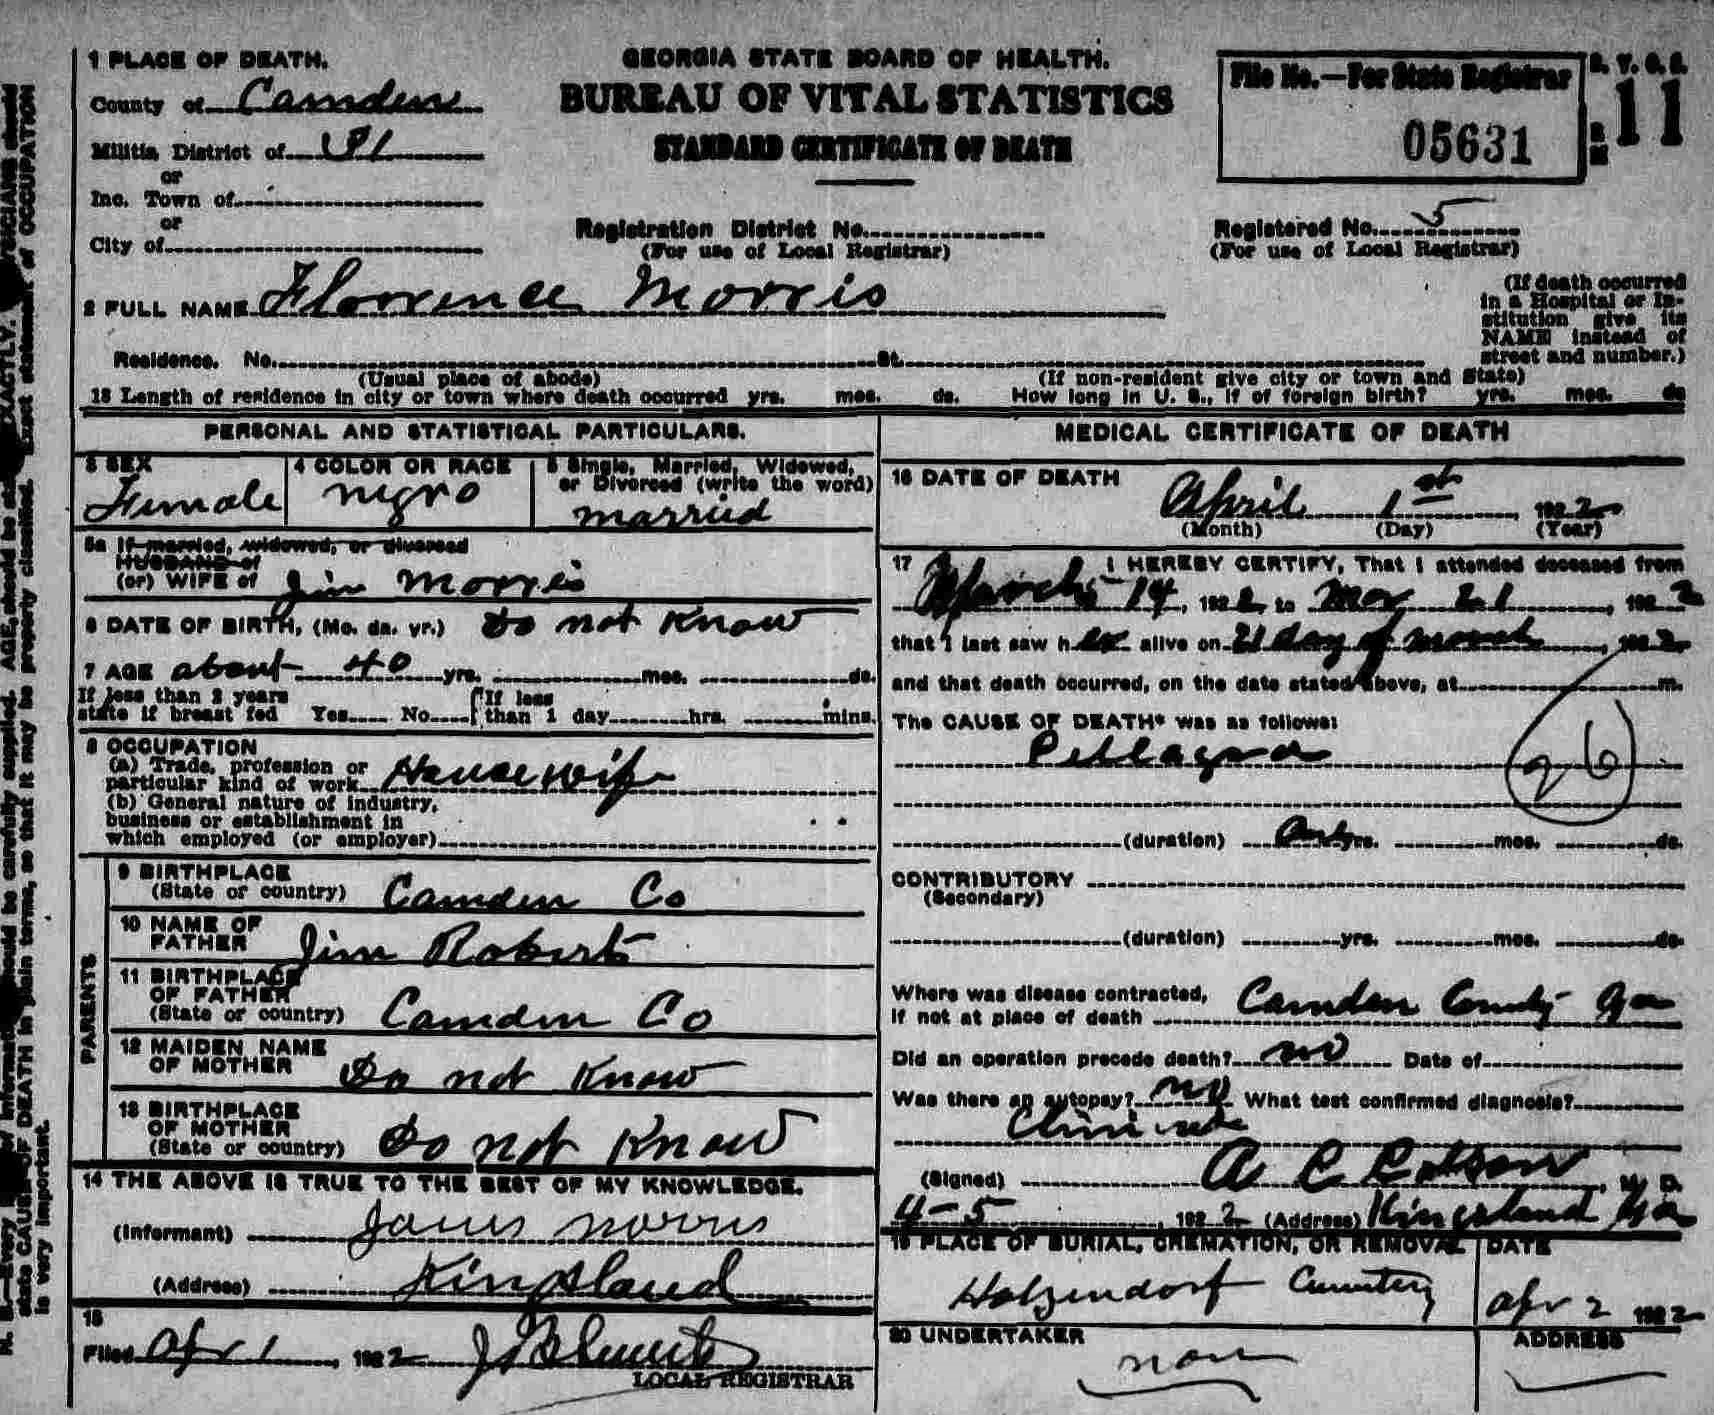 1 PLACE OF DEATH.
County of Camden
Militia District of 31
or
Inc. Town of
or
City of
GEORGIA STATE BOARD OF HEALTH.
BUREAU OF VITAL STATISTICS
STANDARD CERTIFICATE OF DEATH
File No.—For State Registrar
05631
11
Registration District No.
(For use of Local Registrar)
Registered No. 5
(For use of Local Registrar)
2 FULL NAME Florrence Morris
(If death occurred
in a Hospital or In-
stitution give its
NAME instead of
street and number.)
Residence. No. St.
(Usual place of abode) (If non-resident give city or town and State)
18 Length of residence in city or town where death occurred yrs. mos. ds. How long in U. S., if of foreign birth? yrs. mos. ds
PERSONAL AND STATISTICAL PARTICULARS.
3 SEX
Female
4 COLOR OR RACE
negro
5 Single, Married, Widowed,
or Divorced (write the word)
married
5a If married, widowed, or divorced
HUSBAND of
(or) WIFE of Jim Morris
6 DATE OF BIRTH, (Mo. da. yr.) Do not Know
7 AGE about 40 yrs. mos. ds.
If less than 2 years
state if breast fed Yes No
If less
than 1 day hrs. mins.
8 OCCUPATION
(a) Trade, profession or
particular kind of work House wife
(b) General nature of industry,
business or establishment in
which employed (or employer)
9 BIRTHPLACE
(State or country) Camden Co
PARENTS
10 NAME OF
FATHER Jim Roberts
11 BIRTHPLACE
OF FATHER
(State or country) Camden Co
12 MAIDEN NAME
OF MOTHER Do not Know
13 BIRTHPLACE
OF MOTHER
(State or country) Do not Know
14 THE ABOVE IS TRUE TO THE BEST OF MY KNOWLEDGE.
(Informant) James Morris
(Address) Kingsland
15
Filed Apr 1, 1922
LOCAL REGISTRAR
MEDICAL CERTIFICATE OF DEATH
16 DATE OF DEATH April 1st, 1922
(Month) (Day) (Year)
17 I HEREBY CERTIFY, That I attended deceased from
March 14, 1922 to Mar 21, 1922
that I last saw her alive on 21 day of March, 1922
and that death occurred, on the date stated above, at m.
The CAUSE OF DEATH* was as follows:
Pellagra
26
(duration) yrs. mos. ds.
CONTRIBUTORY
(Secondary)
(duration) yrs. mos. ds.
Where was disease contracted,
if not at place of death Camden County Ga
Did an operation precede death? no Date of
Was there an autopsy? no What test confirmed diagnosis?
(Signed) A C, M. D.
4-5, 1922 (Address) Kingsland Ga
19 PLACE OF BURIAL, CREMATION, OR REMOVAL DATE
Holzendorf Cemetery Apr 2 1922
20 UNDERTAKER ADDRESS
non